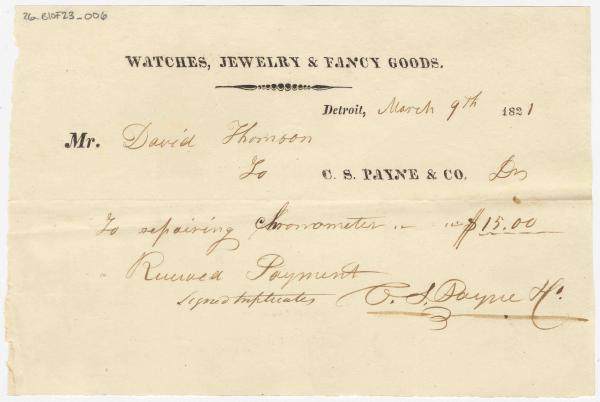 26_B10F23_006
WATCHES, JEWELRY & FANCY GOODS.
Detroit, March 9th 1821
Mr. David Thomson
To C. S. PAYNE & CO. Drs
To repairing Chronometer " " $15.00
Received Payment
Signed triplicates C. S. Payne & Co.